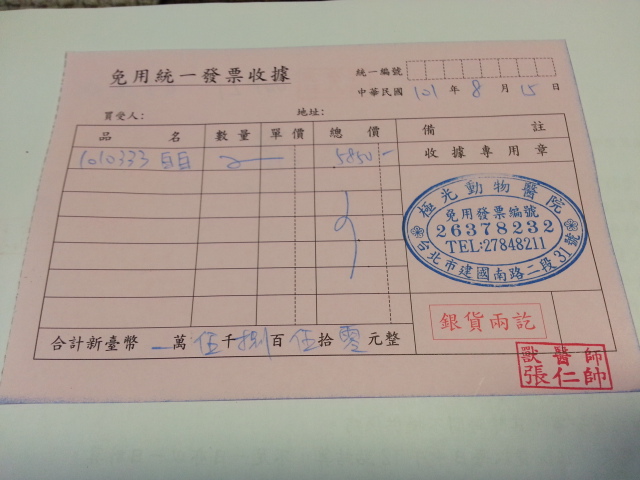 免用統一發票收據
統一編號
中華民國 101 年 8 月 15 日
買受人: 地址:
品名 數量 單價 總價 備註
1010333 5850- 收據專用章
極光動物醫院
免用發票編號
26378232
TEL:27848211
台北市建國南路二段31號
銀貨兩訖
合計新臺幣 萬 伍 千 捌 百 伍 拾 零 元整
獸醫師
張仁帥